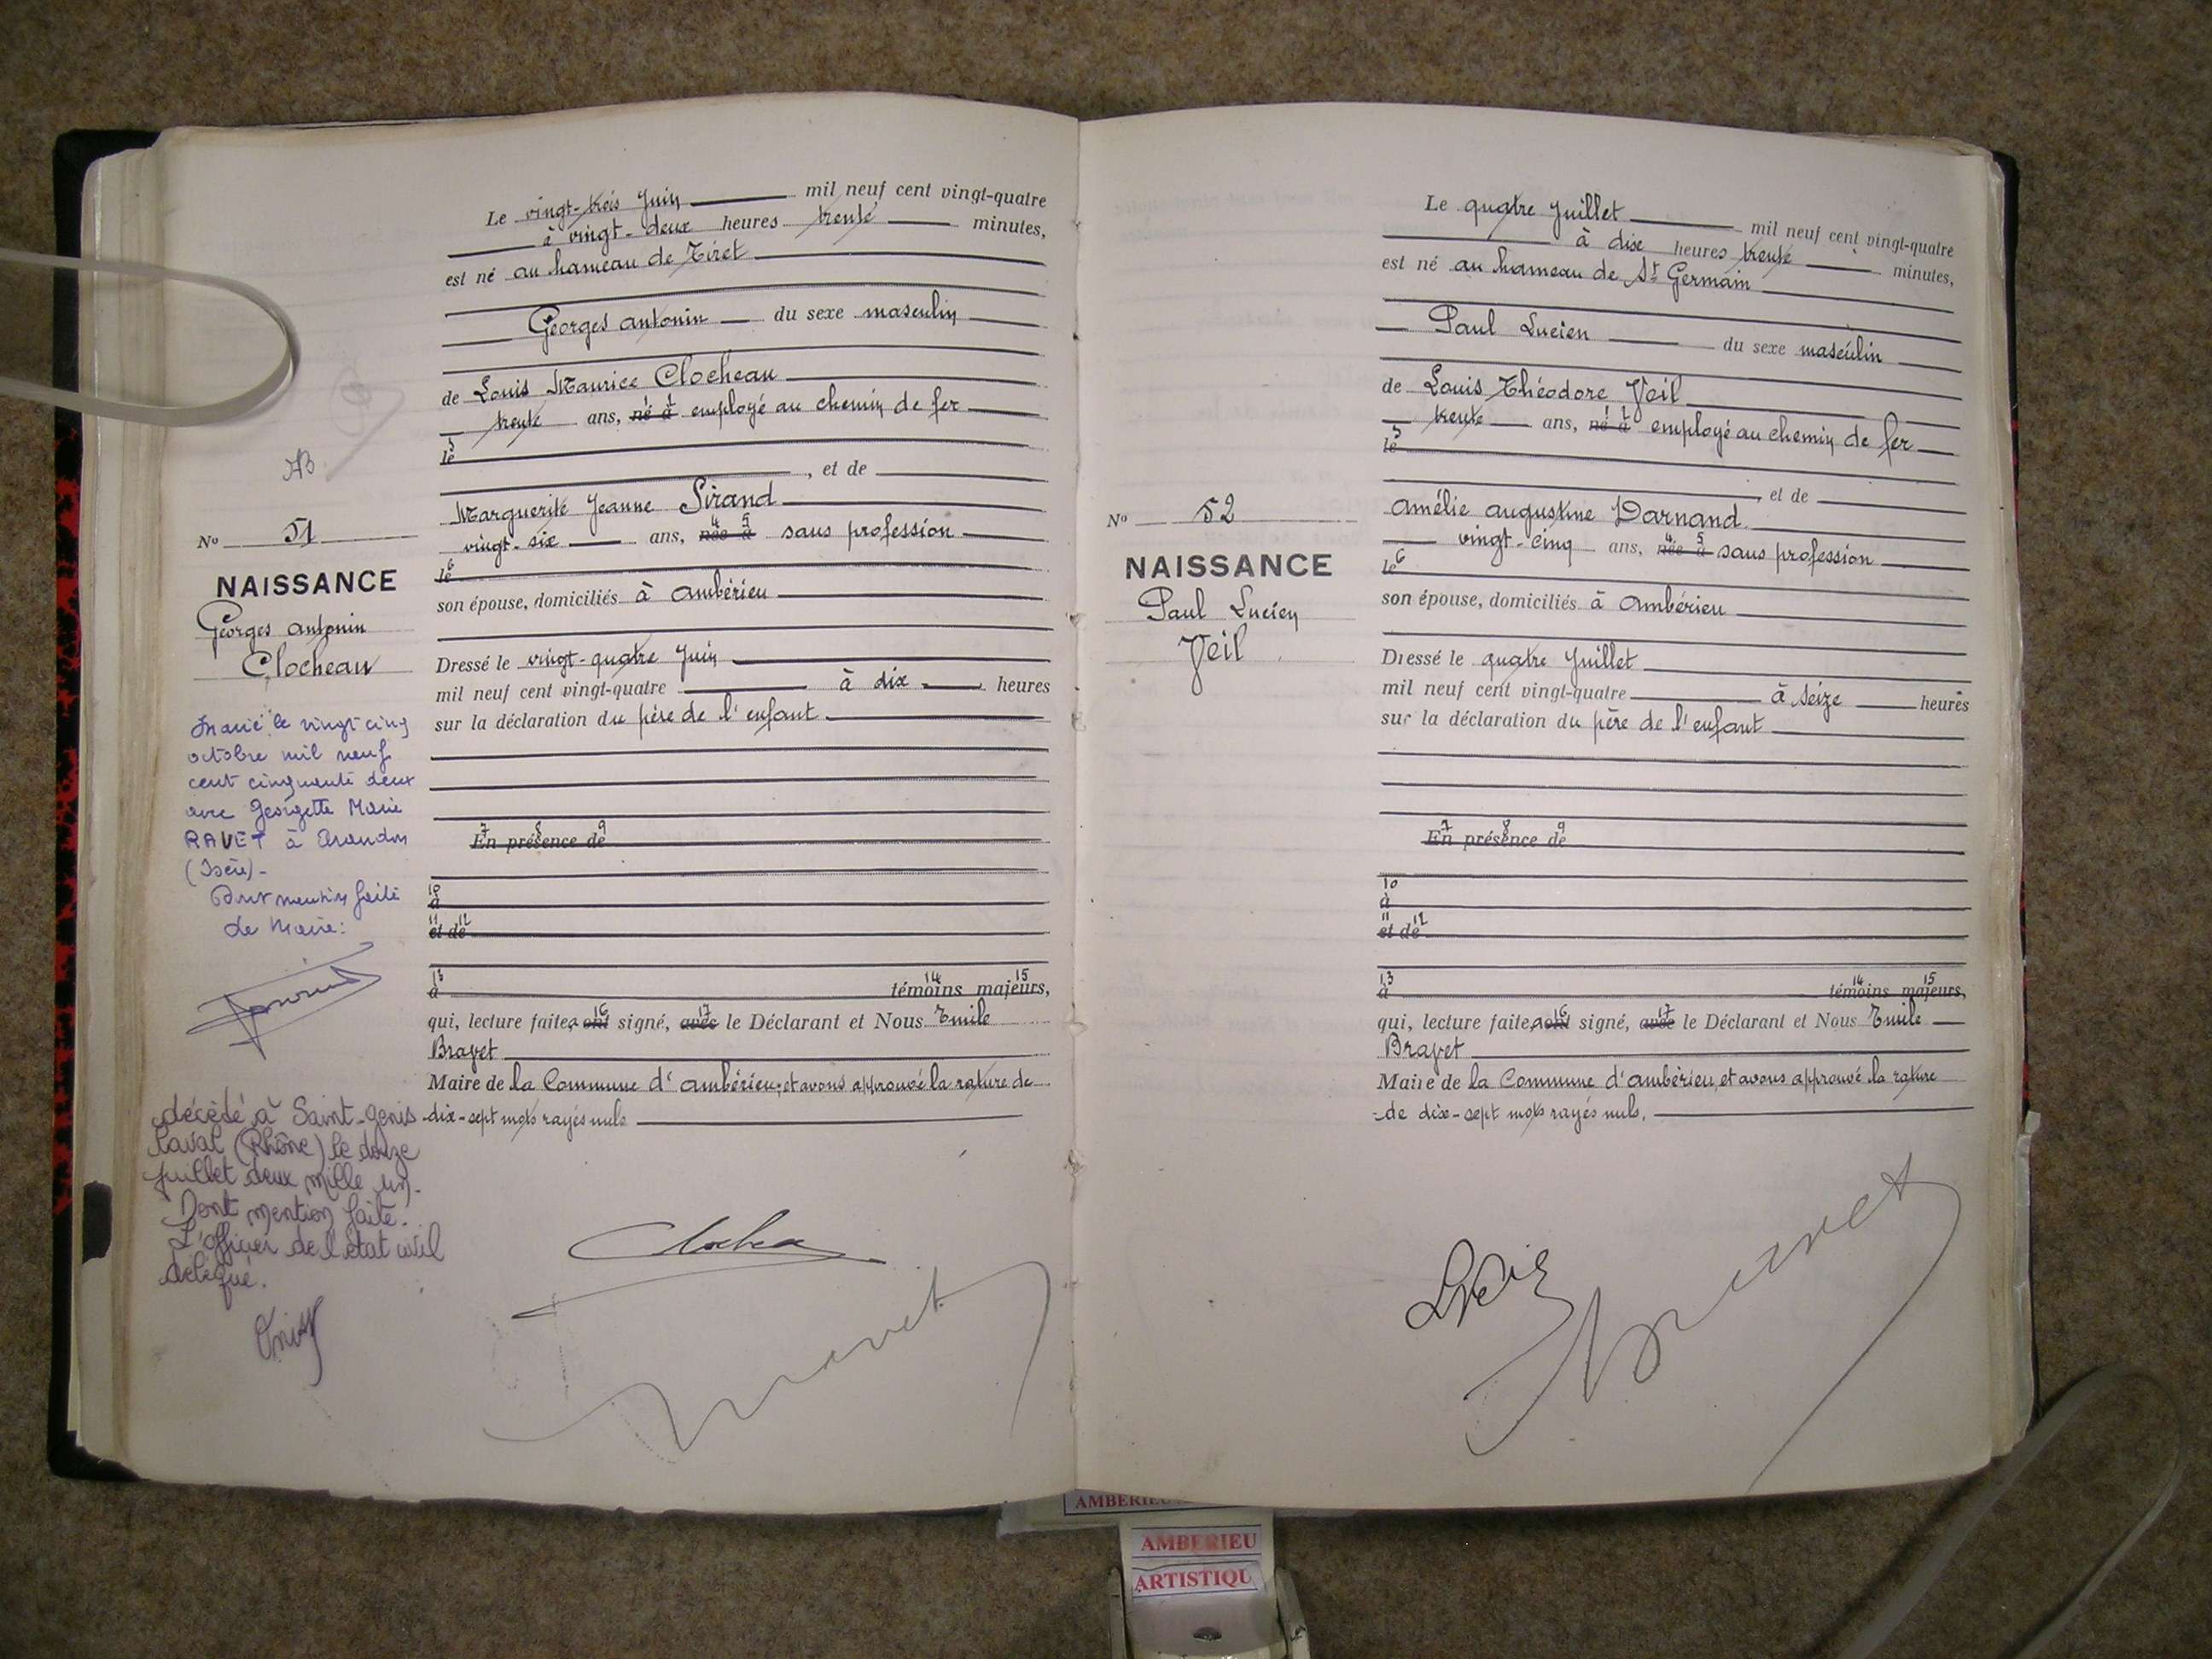 AB
No 51
NAISSANCE
Georges Antonin
Clocheau
Marié le vingt cinq
octobre mil neuf
cent cinquante deux
avec Georgette Marie
RAVET à Arandon
(Isère) -
Dont mention faite
Le Maire:
décédé à Saint-Genis
Laval (Rhône) le douze
juillet deux mille un.
Dont mention faite.
L'officier de l'état civil
délégué.
Le vingt-trois Juin mil neuf cent vingt-quatre
à vingt-deux heures trente minutes,
est né au hameau de Tiret
Georges Antonin du sexe masculin
de Louis Maurice Clocheau
trente ans, né 1 à 2 employé au chemin de fer
le 3
, et de
Marguerite Jeanne Sirand
vingt-six ans, née 4 à 5 sans profession
le 6
son épouse, domiciliés à Ambérieu
Dressé le vingt-quatre Juin
mil neuf cent vingt-quatre à dix heures
sur la déclaration du père de l'enfant
En 7 présence 8 de 9
10
à
et 11 de 12
13
à témoins 14 majeurs 15,
qui, lecture faite, a ont 16 signé, avec 17 le Déclarant et Nous Emile
Bravet
Maire de la Commune d'Ambérieu, et avons approuvé la rature de
dix-sept mots rayés nuls.
Clocheau
Bravet
No 52
NAISSANCE
Paul Lucien
Veil
Le quatre Juillet mil neuf cent vingt-quatre
à dix heures trente minutes,
est né au hameau de St Germain
Paul Lucien du sexe masculin
de Louis Théodore Veil
trente ans, né 1 à 2 employé au chemin de fer
le 3
, et de
Amélie Augustine Darnand
vingt-cinq ans, née 4 à 5 sans profession
le 6
son épouse, domiciliés à Ambérieu
Dressé le quatre Juillet
mil neuf cent vingt-quatre à seize heures
sur la déclaration du père de l'enfant
En 7 présence 8 de 9
10
à
et 11 de 12
13
à témoins 14 majeurs 15,
qui, lecture faite, a ont 16 signé, avec 17 le Déclarant et Nous Emile
Bravet
Maire de la Commune d'Ambérieu, et avons approuvé la rature
de dix-sept mots rayés nuls.
LVeil
Bravet
AMBERIEU
AMBERIEU
ARTISTIQU